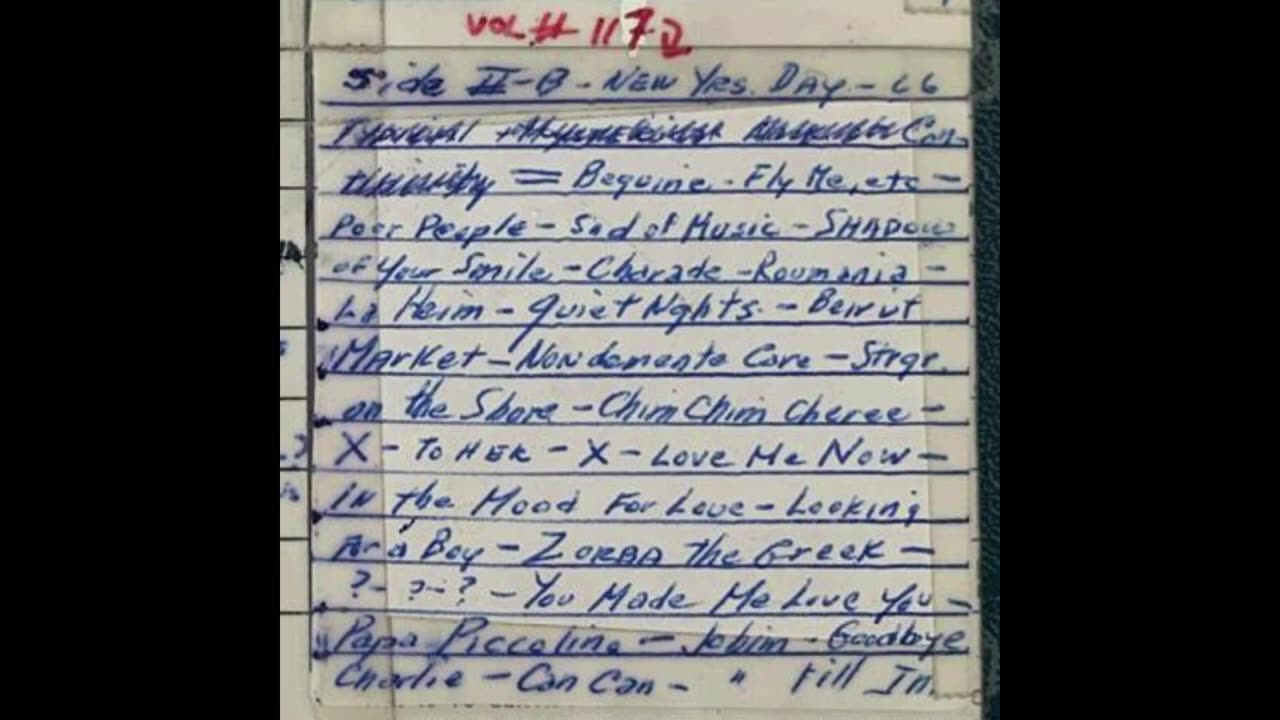 VOL # 1172
Side II-B - NEW YRS. DAY - 66
Con-
= Beguine - Fly Me, etc -
Poor People - Snd of Music - SHADOW
of Your Smile - Charade - Roumania -
La Heim - Quiet Nghts. - Beirut
Market - Nondemento Care - Strgr.
on the Shore - Chim Chim Cheree -
X - TO HER - X - Love Me Now -
IN the Mood For Love - Looking
For a Boy - ZORBA the Greek -
? - ? - ? - You Made Me Love You -
" Papa Piccolino - Jobim - Goodbye
Charlie - Can Can - " Fill In.